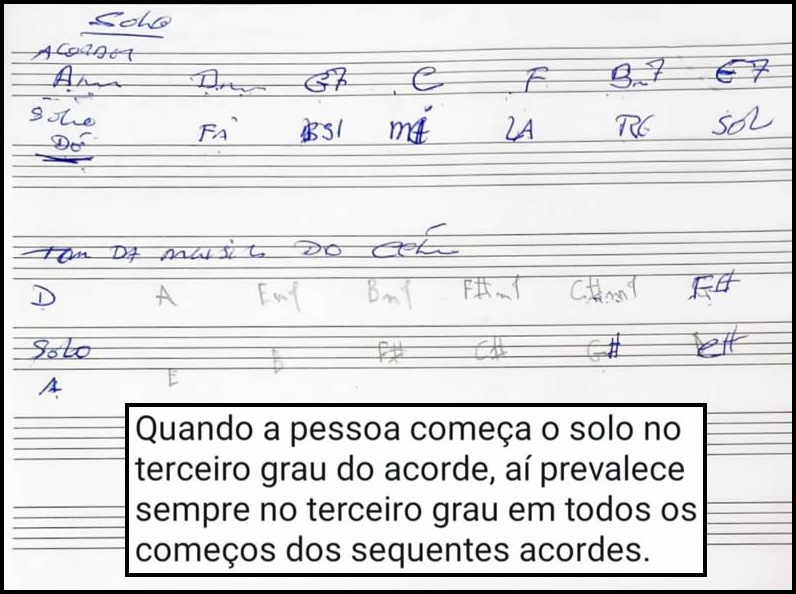 Solo
ACORDES
Am Dm G7 C F Bm7 E7
Solo
DÓ FÁ SI MI LA RE SOL
Tom DA musica DO Céu
D A Em7 Bm7 F#m7 C#m7 F#
Solo
A E B F# C# G# C#
Quando a pessoa começa o solo no
terceiro grau do acorde, aí prevalece
sempre no terceiro grau em todos os
começos dos sequentes acordes.